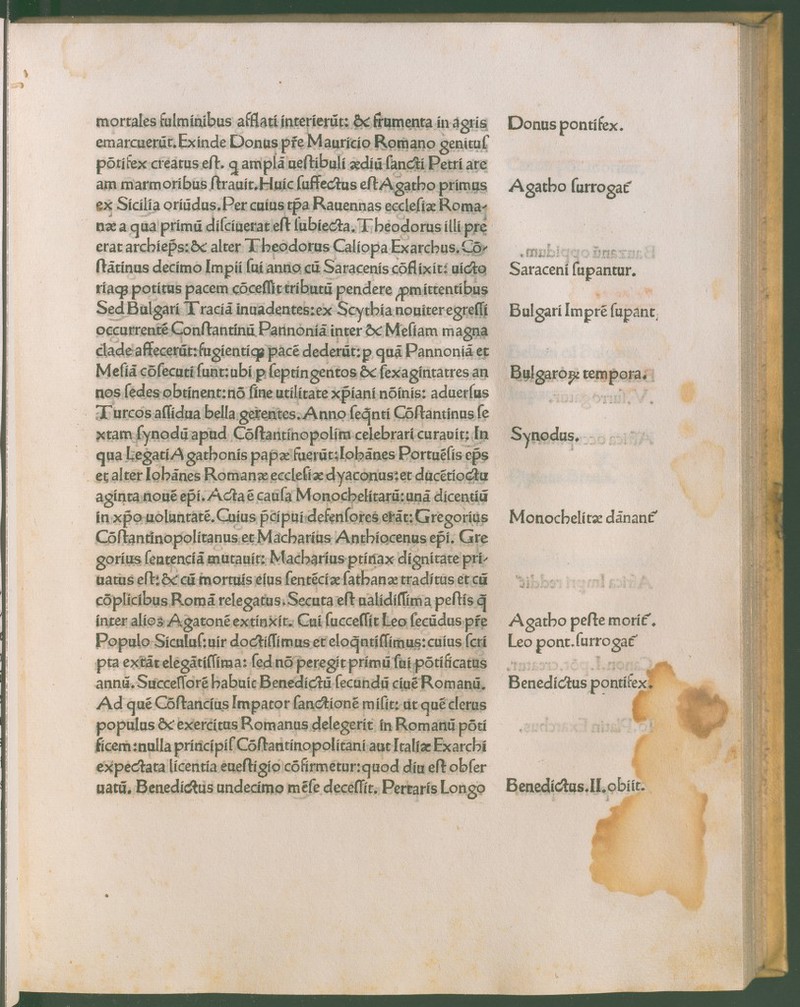 mortales fulminibus afflati interierūt: &c frumenta in agris
emarcuerūt. Exinde Donus pr̄e Mauricio Romano genituſ
pōtifex creatus eſt. q amplā ueſtibuli ædiū ſancti Petri are
am marmoribus ſtrauit. Huic ſuffectus eſt Agatho primus
ex Sicilia oriūdus. Per cuius tp̄a Rauennas eccleſiæ Roma-
næ a qua primū diſciuerat eſt ſubiecta. Theodorus illi pre
erat archiep̄s: &c alter Theodorus Caliopa Exarchus. Cō-
ſtātinus decimo Impii ſui anno cū Saracenis cōflixit: uicto
riaqꝫ potitus pacem cōceſſit tributū pendere ꝓmittentibus
Sed Bulgari Traciā inuadentes: ex Scythia nouiter egreſſi
occurrentē Conſtantinū Pannoniā inter &c Meſiam magna
clade affecerūt: fugientiqꝫ pacē dederūt: p quā Pannoniā et
Meſiā cōſecuti ſunt: ubi p ſeptingentos &c ſexagintatres an
nos ſedes obtinent: nō ſine utilitate xp̄iani nōinis: aduerſus
Turcos aſſidua bella gerentes. Anno ſeq̄nti Cōſtantinus ſe
xtam ſynodū apud Cōſtantinopolim celebrari curauit: In
qua Legati Agathonis papæ fuerūt: Iohānes Portuēſis ep̄s
et alter Iohānes Romanæ eccleſiæ dyaconus: et ducētioctu
aginta nouē ep̄i. Acta ē cauſa Monochelitarū: unā dicentiū
in xp̄o uoluntatē. Cuius p̄cipui defenſores erāt: Gregorius
Cōſtantinopolitanus et Macharius Anthiocenus ep̄i. Gre
gorius ſentenciā mutauit: Macharius ptinax dignitate pri-
uatus eſt: &c cū mortuis eius ſentēciæ ſathanæ traditus et cū
cōplicibus Romā relegatus. Secuta eſt ualidiſſima peſtis q̄
inter alios Agatonē extinxit. Cui ſucceſſit Leo ſecūdus pr̄e
Populo Siculuſ: uir doctiſſimus et eloq̄ntiſſimus: cuius ſcri
pta extāt elegātiſſima: ſed nō peregit primū ſui pōtificatus
annū. Succeſſorē habuit Benedictū ſecundū ciuē Romanū.
Ad quē Cōſtancius Impator ſanctionē miſit: ut quē clerus
populus &c exercitus Romanus delegerit in Romanū pōti
ficem: nulla principiſ Cōſtantinopolitani aut Italiæ Exarchi
expectata licentia eueſtigio cōfirmetur: quod diu eſt obſer
uatū. Benedictus undecimo mēſe deceſſit. Pertaris Longo
Donus pontifex.
Agatho ſurrogat̄
Saraceni ſupantur.
Bulgari Imprē ſupant.
Bulgaroꝝ tempora.
Synodus.
Monochelitæ dānant̄
Agatho peſte morit̄.
Leo pont. ſurrogat̄
Benedictus pontifex.
Benedictus. II. obiit.